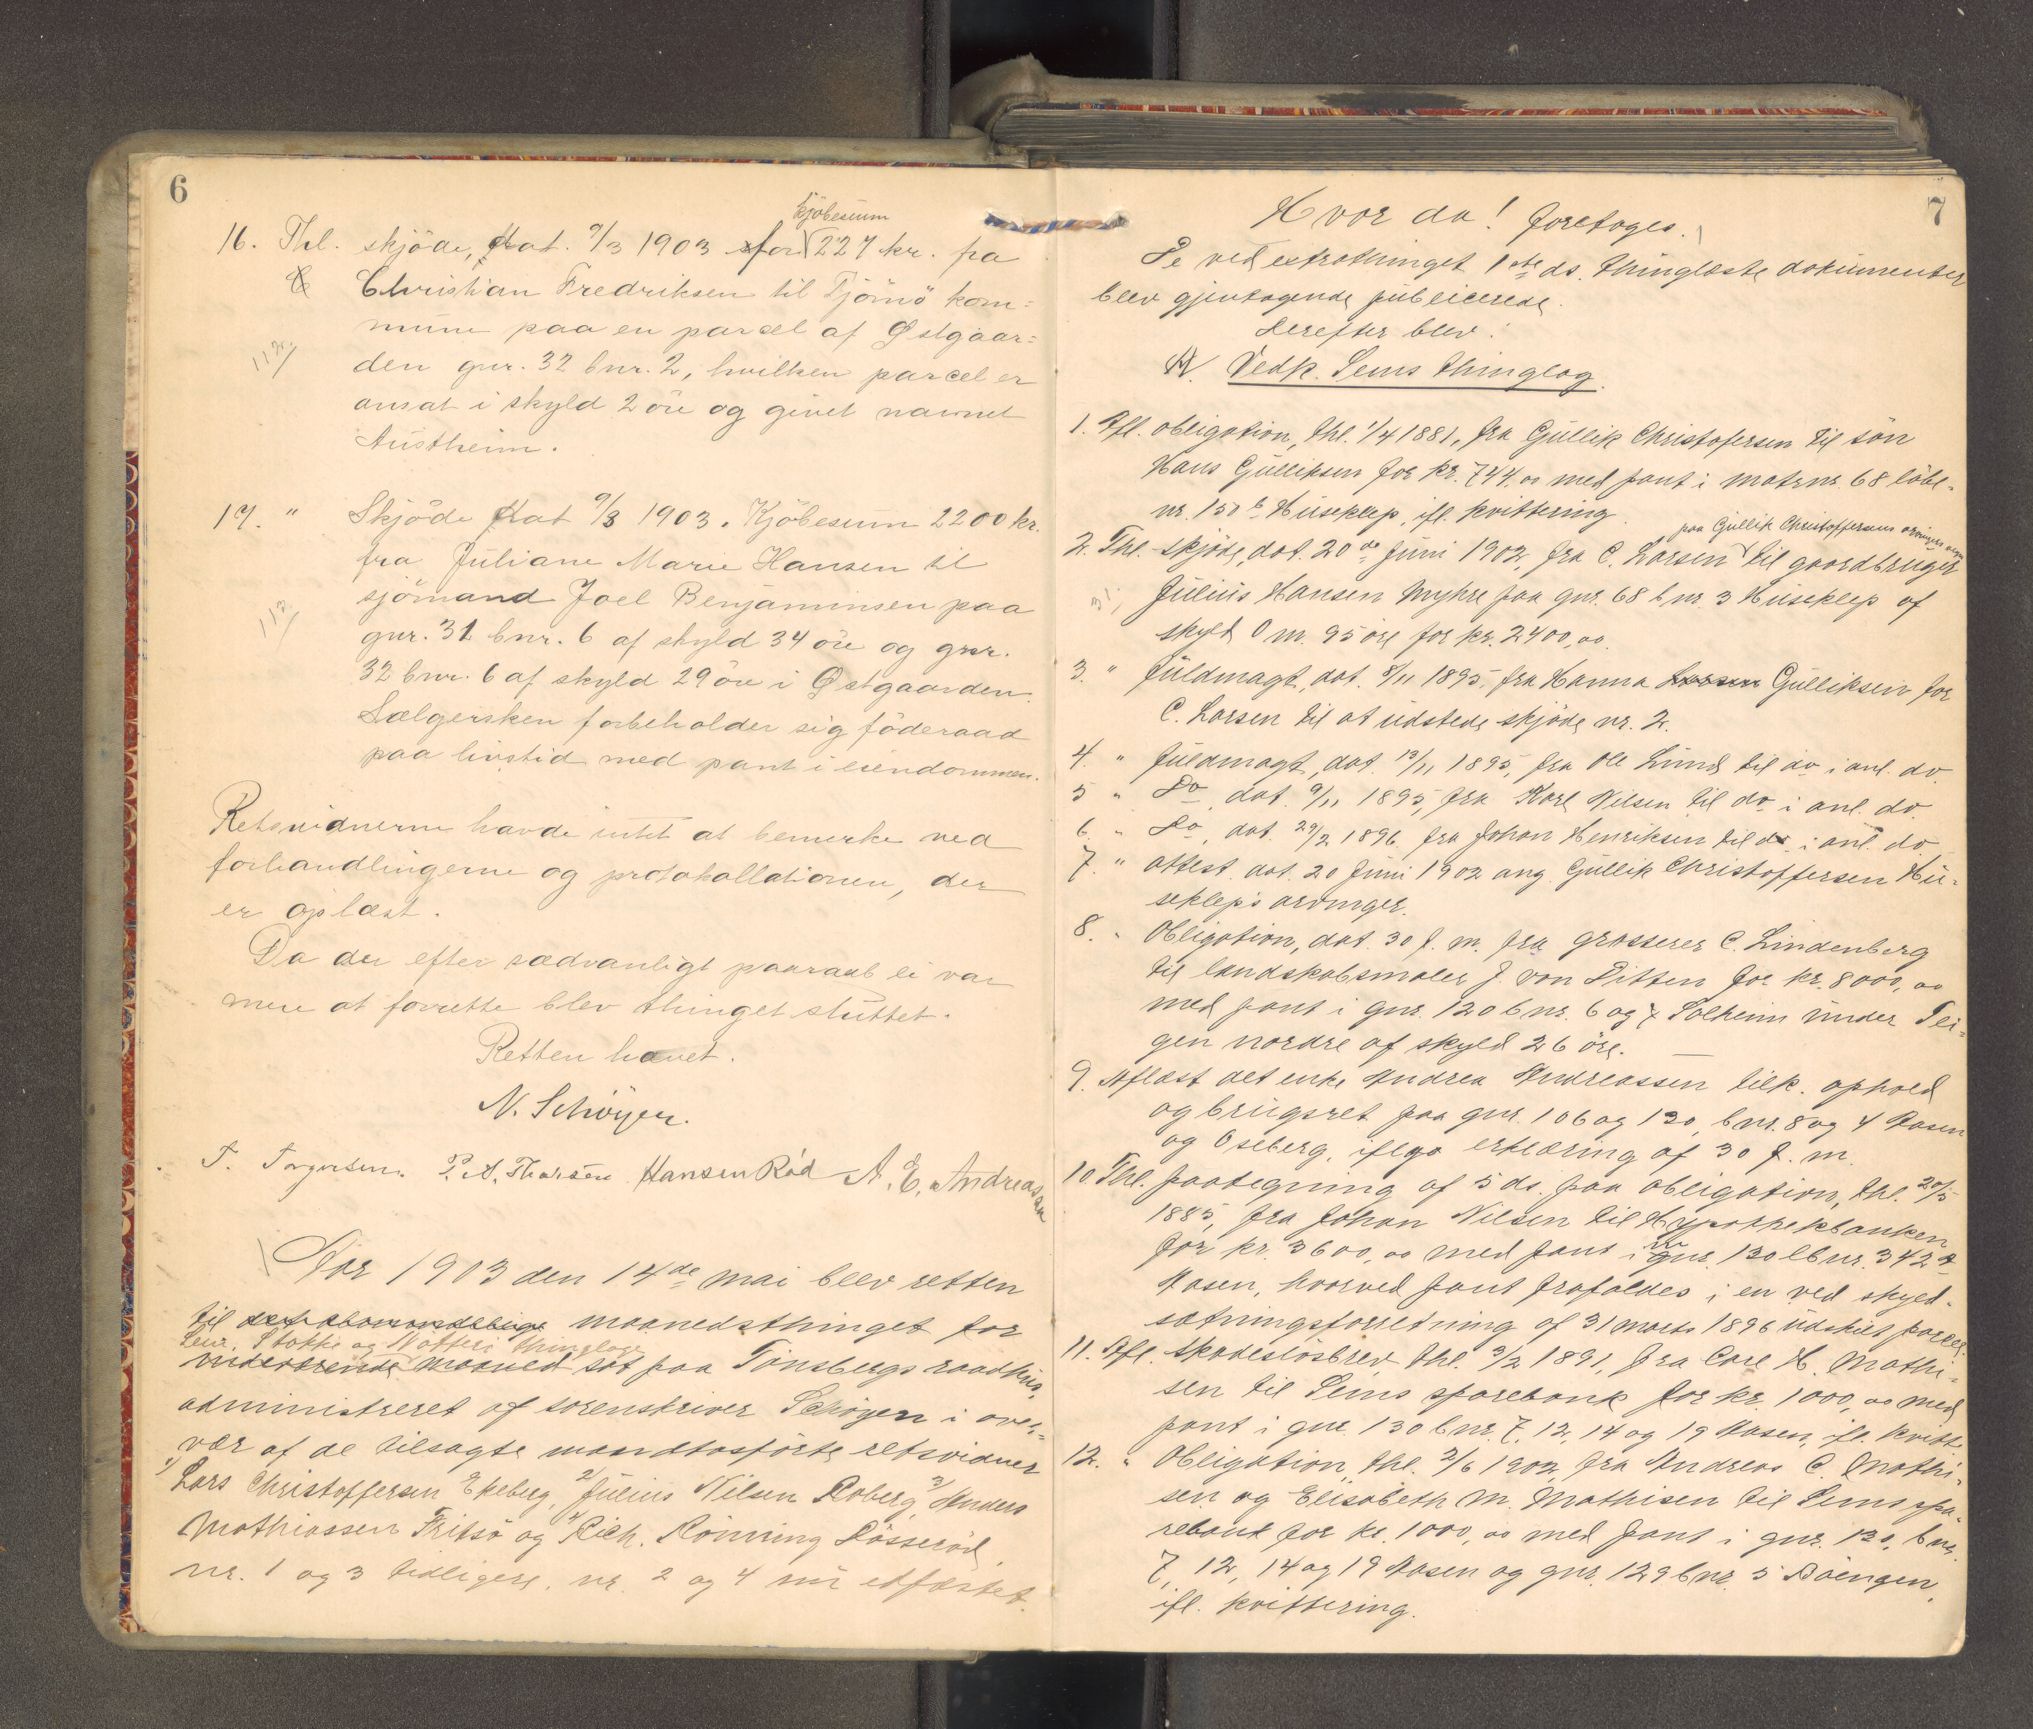 6
kjöbesum
16. Thl. skjöde, dat. 9/3 1903 for 227 kr. fra
Christian Fredriksen til Tjömö kom=
mune paa en parcel af Østgaar=
den gnr. 32 bnr. 2, hvilken parcel er
ansat i skyld 2 öre og givet navnet
Austheim.
17. " Skjöde dat 9/3 1903. Kjöbesum 2200 kr.
fra Juliane Marie Hansen til
sjömand Joel Benjaminsen paa
gnr. 31 bnr. 6 af skyld 34 öre og gnr.
32 bnr. 6 af skyld 29 öre i Østgaarden.
Sælgersken forbeholder sig föderaad
paa livstid med pant i eiendommen.
Retsvidnerne havde intet at bemerke ved
forhandlingerne og protokollationen, der
er oplæst.
Da der efter sædvanligt paaraab ei var
mere at forrette blev thinget sluttet.
Retten hævet.
N. Schöyen.
T. Torgersen. P. A. Thorsen Hansen Röd A. E. Andreassen
Aar 1903 den 14de mai blev retten
til maanedsthinget for
Sem, Stokke og Nötterö thinglag
maaned sat paa Tönsbergs raadhus,
administreret af sorenskriver Schöyen i over=
vær af de tilsagte mandtasförte retsvidner
1) Lars Christoffersen Ekeberg, 2) Julius Nilsen Roberg, 3) Anders
Mathiassen Fritsö og 4) Rich. Rönning Rösseröd,
nr. 1 og 3 tidligere, nr. 2 og 4 nu edfæstet.
7
Hvor da! foretoges.
De ved extrathinget 1ste ds. thinglæste dokumenter
blev gjentagende publicerede.
Derefter blev:
A. Vedk. Sems thinglag.
1. Afl. obligation, thl. 1/4 1881, fra Gullik Christofersen til sön
Hans Gulliksen for kr. 744,00 med pant i matrnr. 68 löbe-
nr. 150 b Huseklep, ifl. kvittering.
paa Gullik Christoffersens arvingers vegne
2. Thl. skjöde, dat. 20de Juni 1902, fra C. Larsen til gaardbruger
Julius Hansen Myhre paa gnr. 68 bnr. 3 Huseklep af
skyld 0 m. 95 öre for kr. 2400,00.
3. " Fuldmagt, dat. 8/11 1895, fra Hanna Larsen Gulliksen for
C. Larsen til at udstede skjöde nr. 2.
4. " Fuldmagt, dat. 13/11 1895, fra Ole Lund til do i anl. do.
5 " Do, dat. 9/11 1895, fra Karl Nilsen til do i anl. do.
6. " Do, dat. 29/2 1896, fra Johan Henriksen til do i anl. do
7. " Attest, dat. 20 Juni 1902 ang. Gullik Christoffersen Hu-
seklep's arvinger.
8. " Obligation, dat. 30 f. m. fra grosserer C. Lindenberg
til landskabsmaler J. von Ditten for kr. 8000,00
med pant i gnr. 120 bnr. 6 og 7 Solheim under Tei-
gen nordre af skyld 26 öre.
9. Aflæst det enke Andrea Andreassen tilk. ophold
og brugsret paa gnr. 106 og 130, bnr. 8 og 4 Aasen
og Oseberg, iflge erklæring af 30 f. m.
10. Thl. paategning af 5 ds. paa obligation, thl. 20/5
1885, fra Johan Nilsen til Hypothekbanken
for kr. 3600,00 med pant i gnr. 130 lbnr. 342 a
Aasen, hvorved pant frafaldes i en ved skyld-
sætningsforretning af 31 marts 1896 udskilt parcel.
11. Afl. skadeslösbrev, thl. 3/2 1891, fra Carl H. Mathi-
sen til Sems sparebank for kr. 1000,00 med
pant i gnr. 130 bnr. 7, 12, 14 og 19 Aasen, ifl. kvitt.
12. " Obligation, thl. 2/6 1902, fra Andreas C. Mathi-
sen og Elisabeth M. Mathisen til Sems spa-
rebank for kr. 1000,00 med pant i gnr. 130, bnr.
7, 12, 14 og 19 Aasen og gnr. 129 bnr. 5 Böengen,
ifl. kvittering.